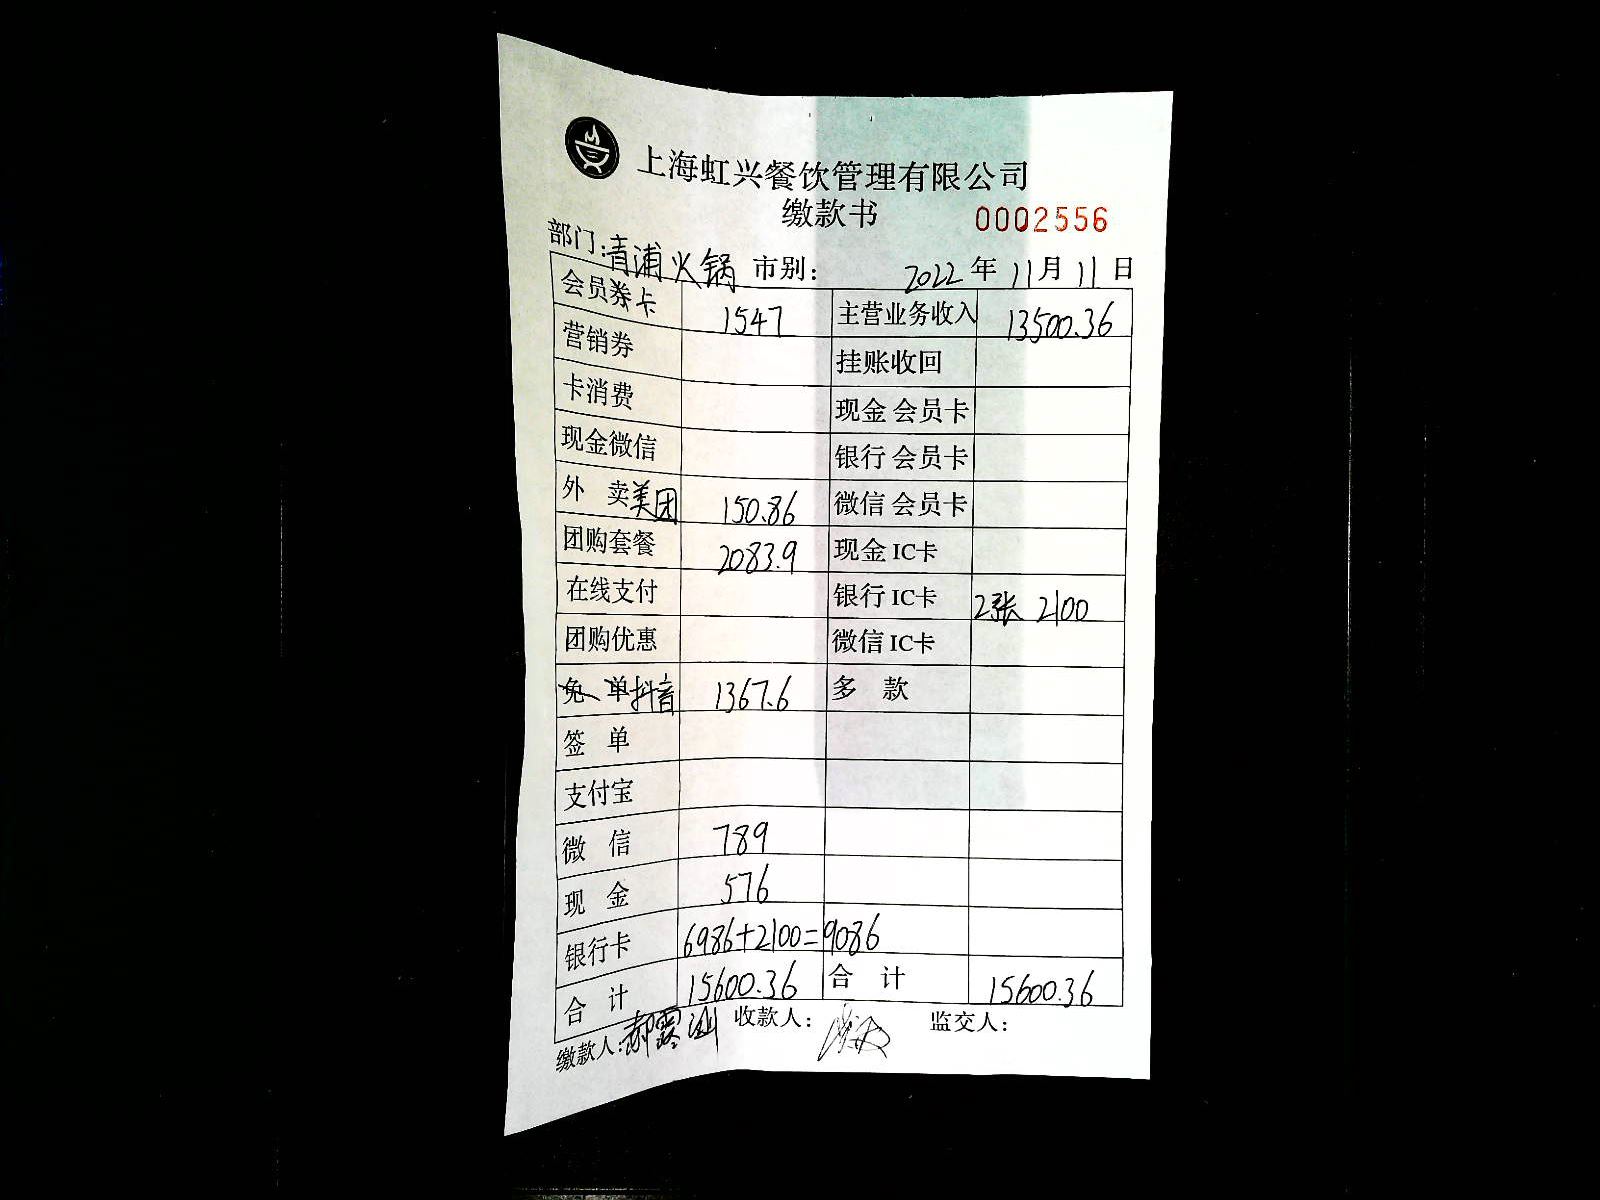 上海虹兴餐饮管理有限公司
缴款书 0002556
部门:青浦火锅 市别: 2022 年 11 月 11 日
会员券卡 1547 主营业务收入 13500.36
营销券 挂账收回
卡消费 现金 会员卡
现金微信 银行 会员卡
外 卖美团 150.86 微信 会员卡
团购套餐 2083.9 现金 IC卡
在线支付 银行 IC卡 2张 2100
团购优惠 微信 IC卡
免 单抖音 1367.6 多 款
签 单
支付宝
微 信 789
现 金 576
银行卡 6986+2100=9086
合 计 15600.36 合 计 15600.36
缴款人:郝露 收款人: 监交人: